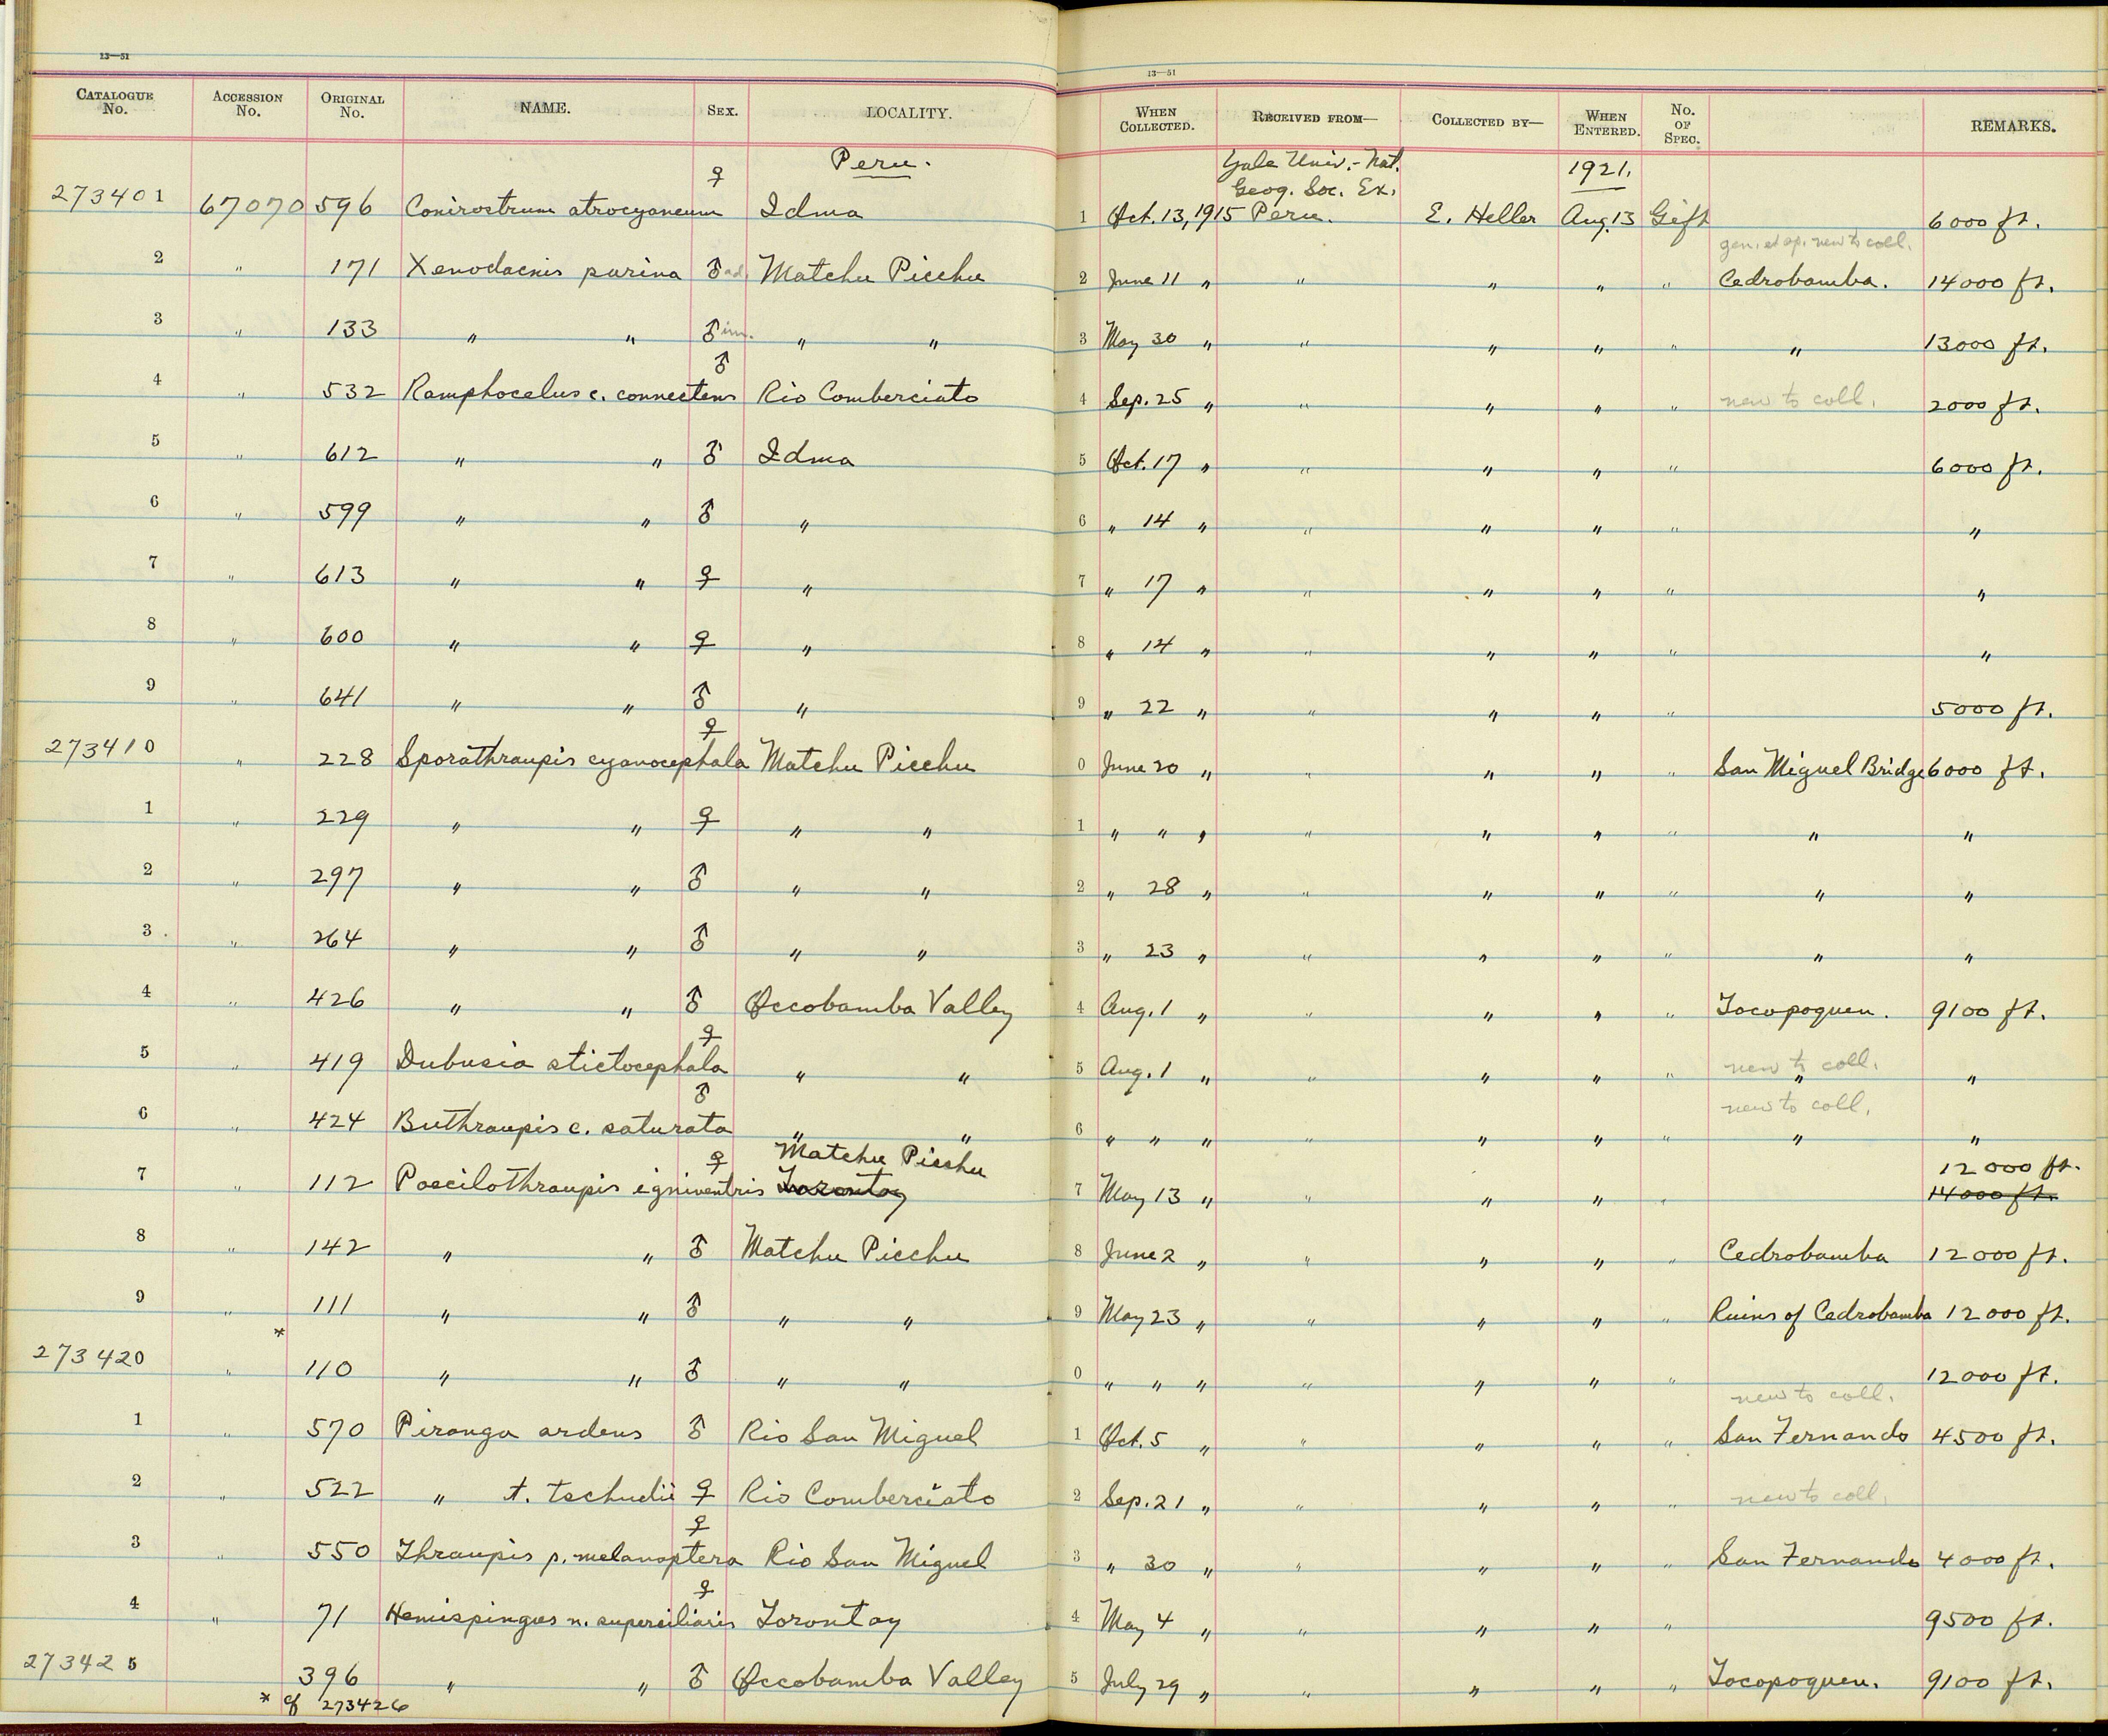 13—51 13—51
CATALOGUE No. ACCESSION No. ORIGINAL No. NAME. SEX. LOCALITY. WHEN COLLECTED. RECEIVED FROM— COLLECTED BY— WHEN ENTERED. No. OF SPEC. REMARKS.
Peru. Yale Univ.- Nat. 1921.
Geog. Soc. Ex.
273401 67070 596 Conirostrum atrocyaneum ♀ Idma 1 Oct. 13, 1915 Peru. E. Heller Aug. 13 Gift 6000 ft.
gen. et sp. new to coll.
2 " 171 Xenodacnis parina ♂ ad. Matchu Picchu 2 June 11 " " " " " Cedrobamba. 14000 ft.
3 " 133 " " ♂ im. " " 3 May 30 " " " " " " 13000 ft.
4 " 532 Ramphocelus c. connectens ♂ Rio Comberciato 4 Sep. 25 " " " " " new to coll. 2000 ft.
5 " 612 " " ♂ Idma 5 Oct. 17 " " " " " 6000 ft.
6 " 599 " " ♂ " 6 " 14 " " " " " "
7 " 613 " " ♀ " 7 " 17 " " " " " "
8 " 600 " " ♀ " 8 " 14 " " " " " "
9 " 641 " " ♂ " 9 " 22 " " " " " 5000 ft.
273410 " 228 Sporathraupis cyanocephala ♀ Matchu Picchu 0 June 20 " " " " " San Miguel Bridge 6000 ft.
1 " 229 " " ♀ " " 1 " " " " " " " " "
2 " 297 " " ♂ " " 2 " 28 " " " " " " "
3 " 264 " " ♂ " " 3 " 23 " " " " " " "
4 " 426 " " ♂ Occobamba Valley 4 Aug. 1 " " " " " Tocopoquen. 9100 ft.
5 " 419 Dubusia stictocephala ♀ " " 5 Aug. 1 " " " " " new to coll. " "
new to coll.
6 " 424 Buthraupis c. saturata ♂ " " 6 " " " " " " " " "
Matchu Picchu 12000 ft.
7 " 112 Poecilothraupis igniventris ♀ Torontoy 7 May 13 " " " " " 14000 ft.
8 " 142 " " ♂ Matchu Picchu 8 June 2 " " " " " Cedrobamba 12000 ft.
9 " 111 " " ♂ " " 9 May 23 " " " " " Ruins of Cedrobamba 12000 ft.
*
273420 " 110 " " ♂ " " 0 " " " " " " " 12000 ft.
new to coll.
1 " 570 Piranga ardens ♂ Rio San Miguel 1 Oct. 5 " " " " " San Fernando 4500 ft.
2 " 522 " t. tschudii ♀ Rio Comberciato 2 Sep. 21 " " " " " new to coll.
3 " 550 Thraupis p. melanoptera ♀ Rio San Miguel 3 " 30 " " " " " San Fernando 4000 ft.
4 " 71 Hemispingus n. superciliaris ♀ Torontoy 4 May 4 " " " " " 9500 ft.
273425 396 " " ♂ Occobamba Valley 5 July 29 " " " " " Tocopoquen. 9100 ft.
* cf 273426